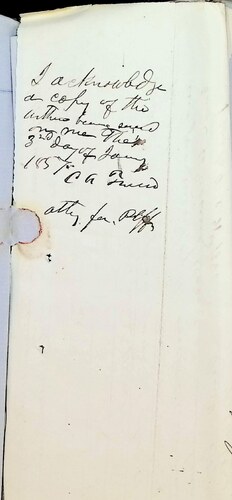 I acknowledge
a copy of the
within being served
on me the
3rd day of Jany
185
C A
atty. for. Plffs